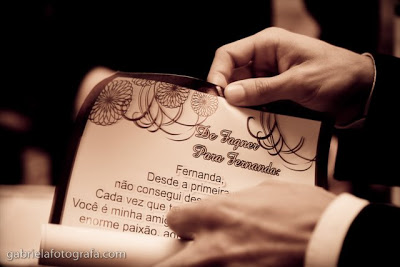 De Fagner
Para Fernanda:
Fernanda,
Desde a primeira
não consegui des
Cada vez que t
Você é minha amig
enorme paixão, aq
Por
gabrielafotografa.com